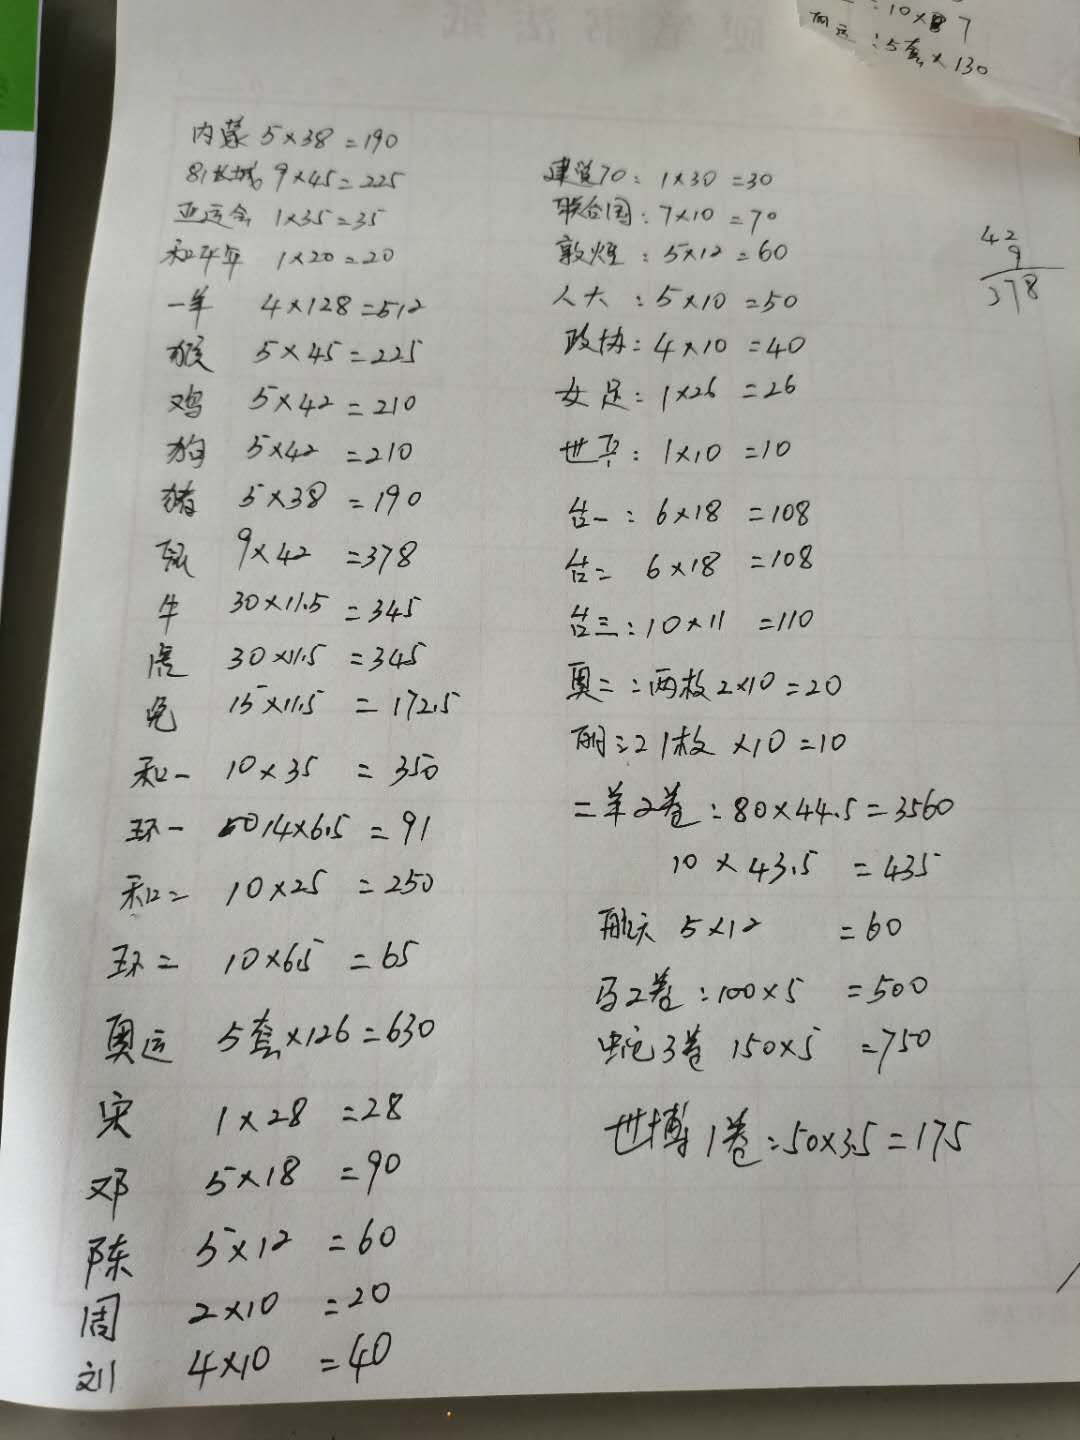 硬笔书法纸
:10×87
:5套×130
内蒙 5×38=190
81长城 9×45=225
亚运会 1×35=35
和平年 1×20=20
一羊 4×128=512
猴 5×45=225
鸡 5×42=210
狗 5×42=210
猪 5×38=190
鼠 9×42=378
牛 30×11.5=345
虎 30×11.5=345
兔 15×11.5=172.5
和一 10×35=350
环一 14×6.5=91
和二 10×25=250
环二 10×6.5=65
奥运 5套×126=630
宋 1×28=28
邓 5×18=90
陈 5×12=60
周 2×10=20
刘 4×10=40
建党70:1×30=30
联合国:7×10=70
敦煌:5×12=60
人大:5×10=50
政协:4×10=40
女足:1×26=26
1×10=10
台一:6×18=108
台二 6×18=108
台三:10×11=110
奥二:两枚2×10=20
1枚×10=10
二羊2卷:80×44.5=3560
10×43.5=435
航天 5×12=60
马2卷:100×5=500
蛇3卷 150×5=750
世博1卷:50×3.5=175
42
9
378